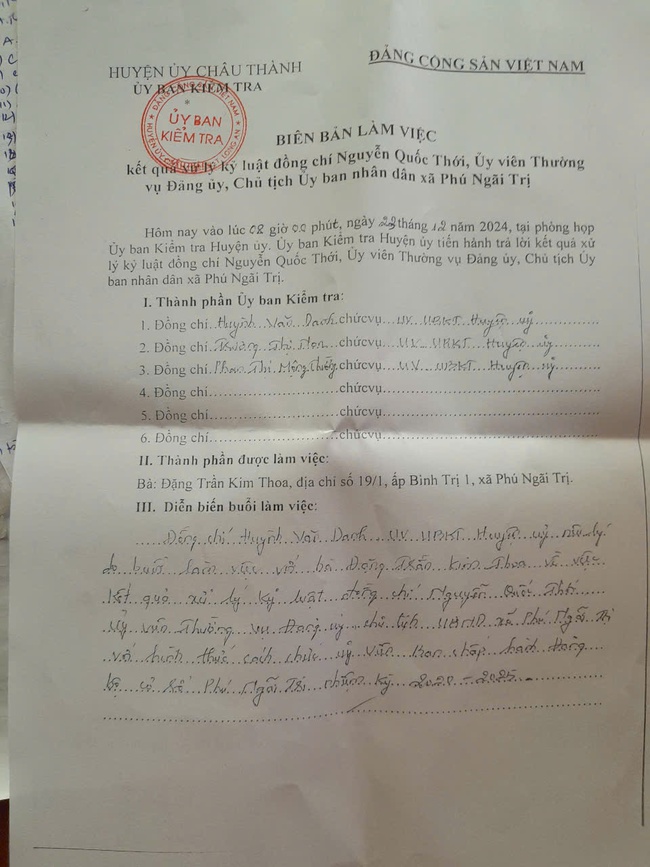 HUYỆN ỦY CHÂU THÀNH
ỦY BAN KIỂM TRA
*
ĐẢNG CỘNG SẢN VIỆT NAM
ỦY BAN
KIỂM TRA
BIÊN BẢN LÀM VIỆC
kết quả xử lý kỷ luật đồng chí Nguyễn Quốc Thới, Ủy viên Thường
vụ Đảng ủy, Chủ tịch Ủy ban nhân dân xã Phú Ngãi Trị
Hôm nay vào lúc 08 giờ 00 phút, ngày 23 tháng 12 năm 2024, tại phòng họp
Ủy ban Kiểm tra Huyện ủy. Ủy ban Kiểm tra Huyện ủy tiến hành trả lời kết quả xử
lý kỷ luật đồng chí Nguyễn Quốc Thới, Ủy viên Thường vụ Đảng ủy, Chủ tịch Ủy
ban nhân dân xã Phú Ngãi Trị.
I. Thành phần Ủy ban Kiểm tra:
1. Đồng chí Huỳnh Văn Danh chức vụ UV UBKT Huyện uỷ
2. Đồng chí Thị chức vụ UV UBKT Huyện uỷ
3. Đồng chí Phan Thị Mộng chức vụ UV UBKT Huyện uỷ
4. Đồng chí chức vụ
5. Đồng chí chức vụ
6. Đồng chí chức vụ
II. Thành phần được làm việc:
Bà: Đặng Trần Kim Thoa, địa chỉ số 19/1, ấp Bình Trị 1, xã Phú Ngãi Trị.
III. Diễn biến buổi làm việc:
Đồng chí Huỳnh Văn Danh UV UBKT Huyện uỷ nêu lý
do buổi làm việc với bà Đặng Trần Kim Thoa về việc
kết quả xử lý kỷ luật đồng chí Nguyễn Quốc Thới
Uỷ viên Thường vụ Đảng uỷ chủ tịch UBND xã Phú Ngãi Trị
với hình thức cách chức uỷ viên Ban chấp hành Đảng
bộ xã Phú Ngãi Trị nhiệm kỳ 2020-2025